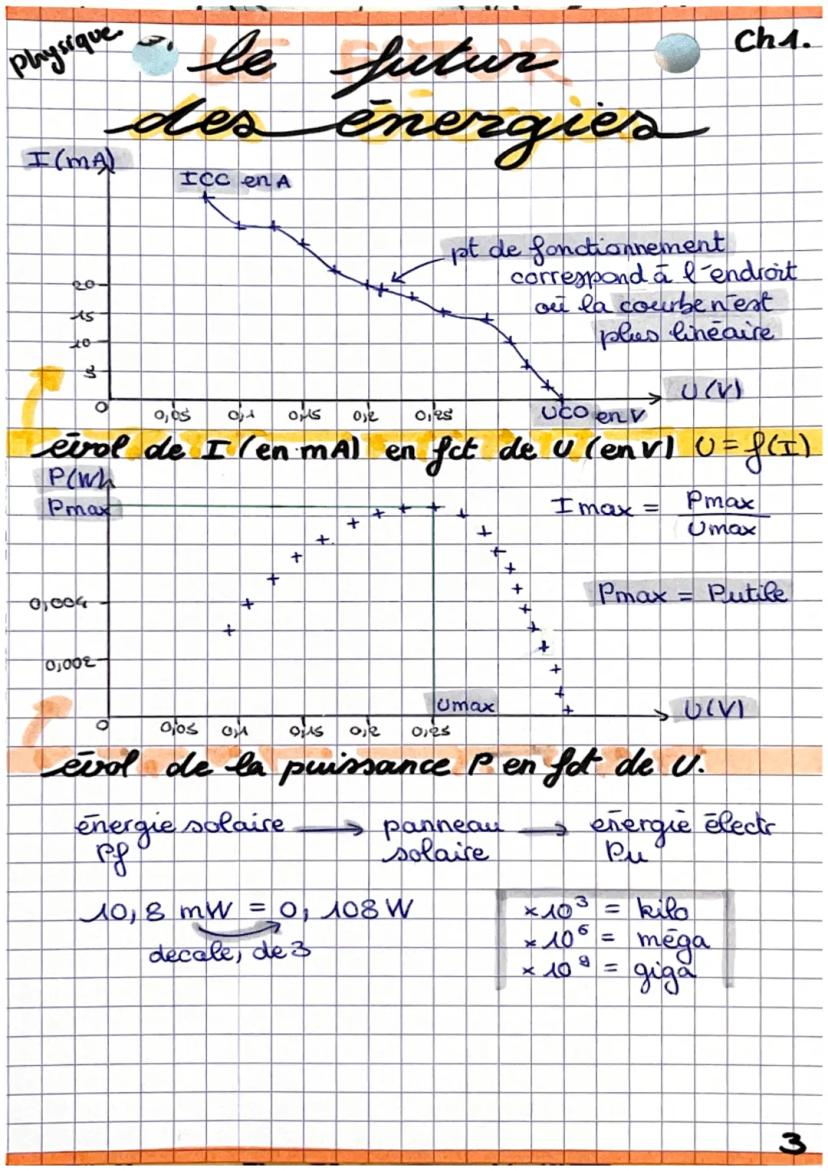 Physique
Ch1.
le futur
des énergies
I(mA)
ICC en A
pt de fonctionnement
correspond à l'endroit
où la courbe n'est
plus linéaire
20
15
10
5
0
0,05 0,1 0,15 0,2 0,25
UCO en V
U(V)
évol de I (en mA) en fct de U (en V) U = f(I)
P(W)
Pmax
Imax = Pmax
Umax
Pmax = Putile
0,004
0,002
Umax
U(V)
0
0,05 0,1 0,15 0,2 0,25
évol de la puissance P en fct de U.
énergie solaire → panneau → énergie électr
Pf solaire Pu
10,8 mW = 0,108W
decale, de 3
×10³ = kilo
×10⁶ = méga
×10⁹ = giga
3